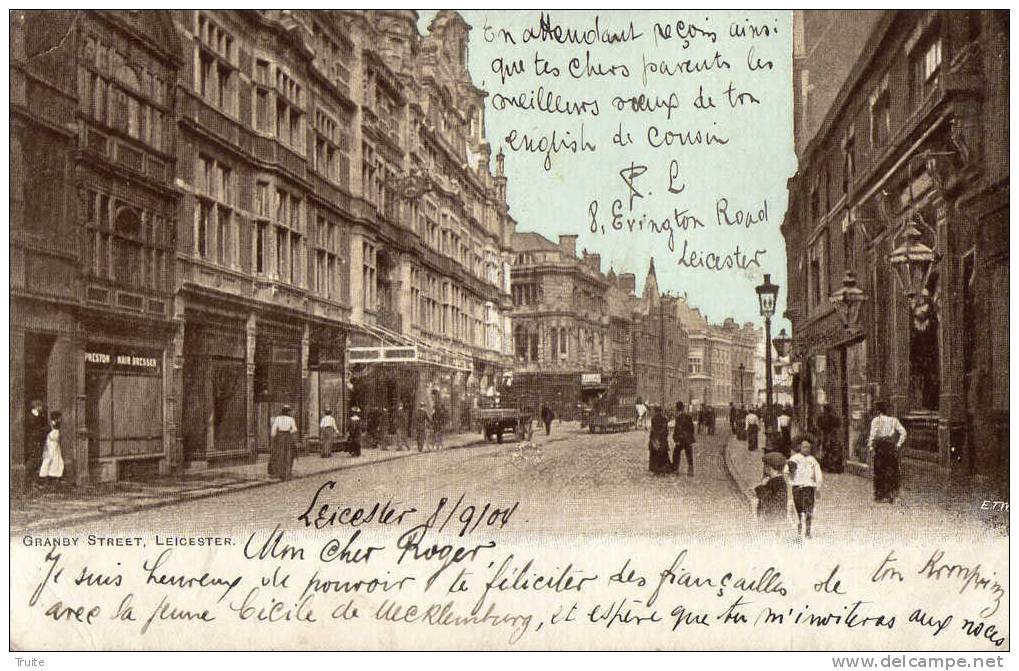 En attendant reçois ainsi
que tes chers parents les
meilleurs vœux de ton
english de Cousin
R. L
8, Evington Road
Leicester
PRESTON HAIR DRESSER
ETW
Leicester 8/9/04
GRANBY STREET, LEICESTER.
Mon cher Roger
Je suis heureux de pouvoir te féliciter des fiançailles de ton Kronprinz
avec la jeune Cécile de Mecklemburg, et espère que tu m'inviteras aux noces
Trute
http://www.delcampe.net